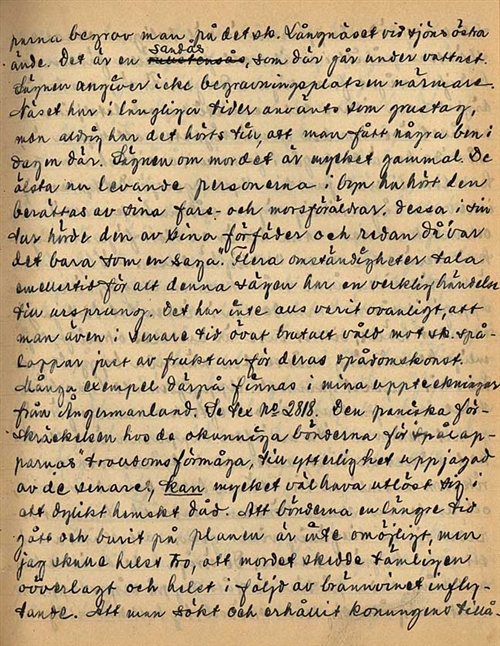 parna begrov man på det sk. Långnäset vid sjöns östra
ände. Det är en sandås, som där går under vattnet.
Sägnen angiver icke begravningsplatsen närmare.
Näset har i långliga tider använts som grustag,
men aldrig har det hörts till, att man fått några ben i
dagen där. Sägnen om mordet är mycket gammal. De
älsta nu levande personerna i byn ha hört den
berättas av sina fars- och morsföräldrar. Dessa i sin
tur hörde den av sina förfäder och redan då var
det bara som en saga." Flera omständigheter tala
emellertid för att denna sägen har en verklig händelse
till ursprung. Det har inte alls varit ovanligt, att
man även i senare tid övat brutalt våld mot sk. spå-
lappar just av fruktan för deras spådomskonst.
Många exempel därpå finnas i mina uppteckningar
från Ångermanland. Se tex No 2818. Den paniska för-
skräckelsen hos de okunniga bönderna för "spålap-
parnas" trolldomsförmåga, till ytterlighet uppjagad
av de senare, kan mycket väl hava utlöst sig i
ett dylikt hemskt dåd. Att bönderna en längre tid
gått och burit på planen är inte omöjligt, men
jag skulle helst tro, att mordet skedde tämligen
oöverlagt och helst i följd av brännvinet infly-
tande. Att man sökt och erhållit konungens tillå-